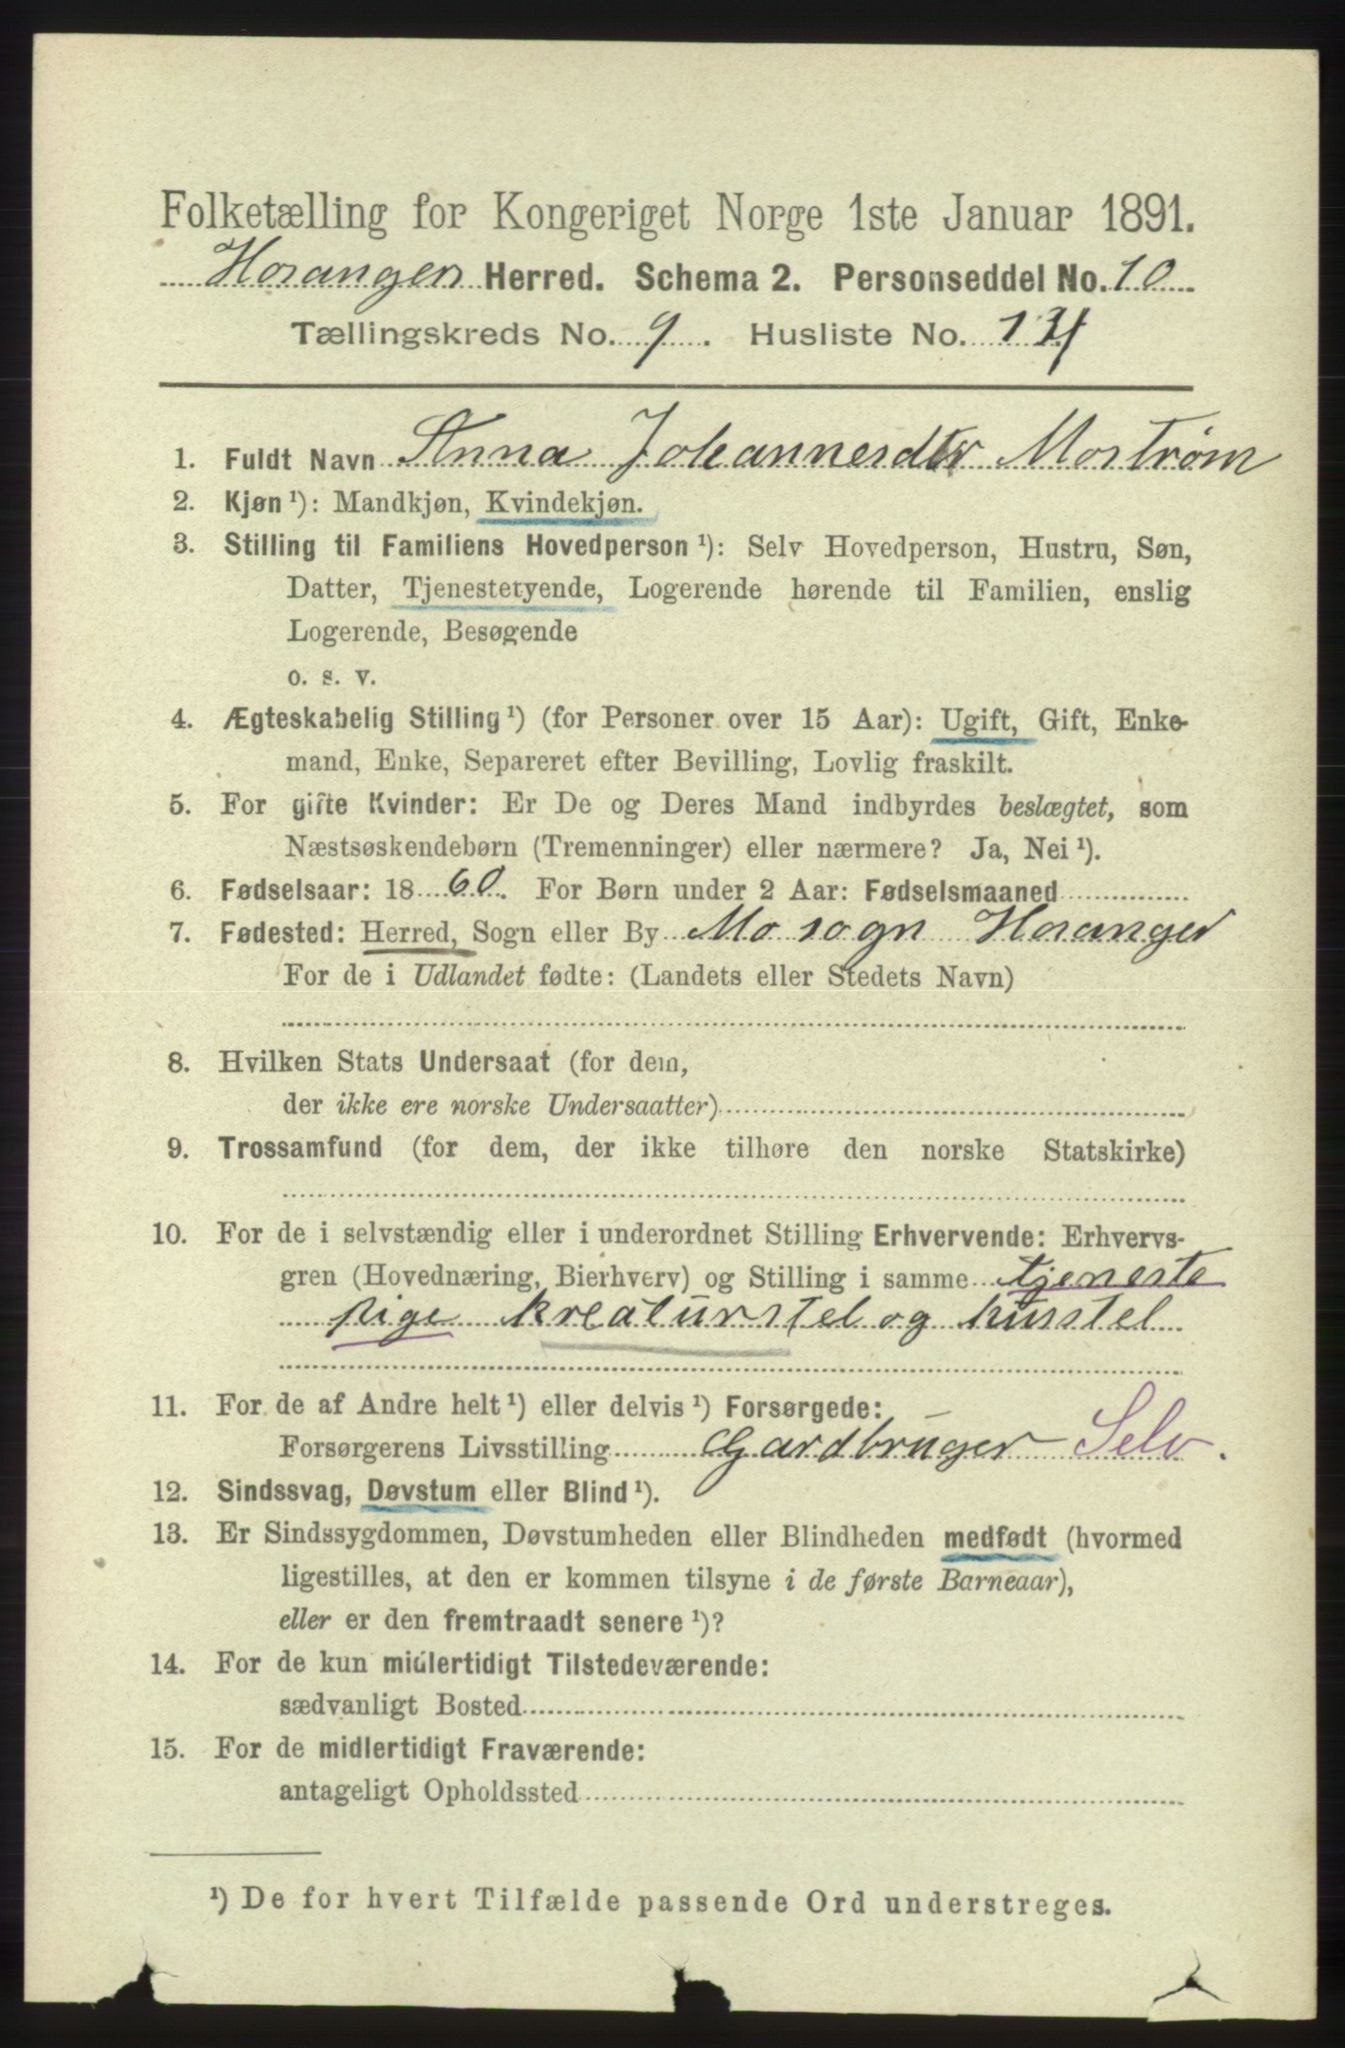 Folketælling for Kongeriget Norge 1ste Januar 1891.
Hosangen Herred. Schema 2. Personseddel No. 10
Tællingskreds No. 9. Husliste No. 134
1. Fuldt Navn Anna Johannesdtr Mostrøm
2. Kjøn ¹): Mandkjøn, Kvindekjøn.
3. Stilling til Familiens Hovedperson ¹): Selv Hovedperson, Hustru, Søn,
Datter, Tjenestetyende, Logerende hørende til Familien, enslig
Logerende, Besøgende
o. s. v.
4. Ægteskabelig Stilling ¹) (for Personer over 15 Aar): Ugift, Gift, Enke-
mand, Enke, Separeret efter Bevilling, Lovlig fraskilt.
5. For gifte Kvinder: Er De og Deres Mand indbyrdes beslægtet, som
Næstsøskendebørn (Tremenninger) eller nærmere? Ja, Nei ¹).
6. Fødselsaar: 18 60. For Børn under 2 Aar: Fødselsmaaned
7. Fødested: Herred, Sogn eller By Mo sogn Hosanger
For de i Udlandet fødte: (Landets eller Stedets Navn)
8. Hvilken Stats Undersaat (for dem,
der ikke ere norske Undersaatter)
9. Trossamfund (for dem, der ikke tilhøre den norske Statskirke)
10. For de i selvstændig eller i underordnet Stilling Erhvervende: Erhvervs-
gren (Hovednæring, Bierhverv) og Stilling i samme tjeneste
pige kreaturstel og husstel
11. For de af Andre helt ¹) eller delvis ¹) Forsørgede:
Forsørgerens Livsstilling Gardbruger Selv.
12. Sindssvag, Døvstum eller Blind ¹).
13. Er Sindssygdommen, Døvstumheden eller Blindheden medfødt (hvormed
ligestilles, at den er kommen tilsyne i de første Barneaar),
eller er den fremtraadt senere ¹)?
14. For de kun midlertidigt Tilstedeværende:
sædvanligt Bosted
15. For de midlertidigt Fraværende:
antageligt Opholdssted
¹) De for hvert Tilfælde passende Ord understreges.